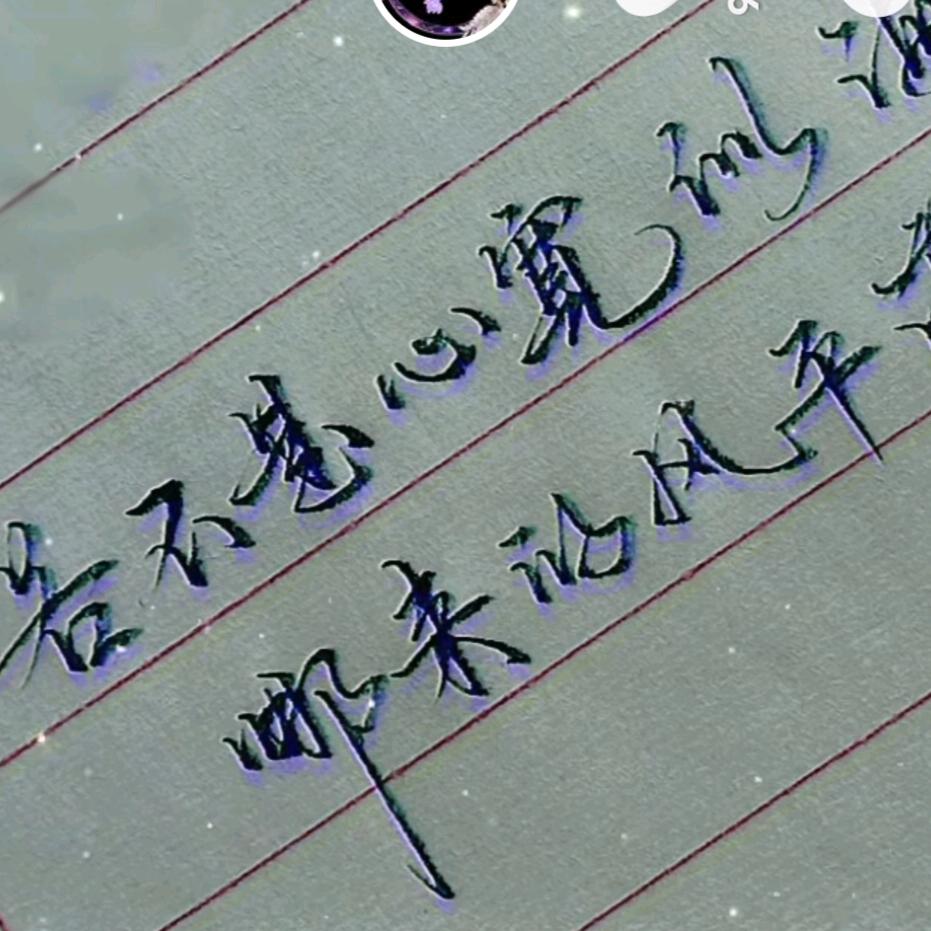 若不是心宽似
哪来的风平